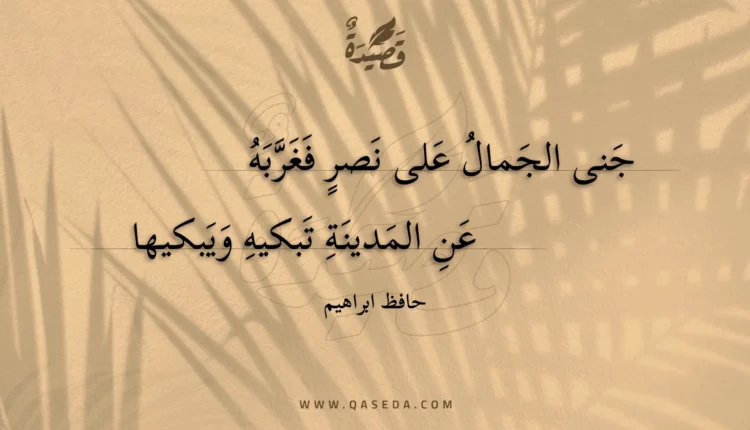 قَصِيدَةٌ
جَنى الجَمالُ عَلى نَصرٍ فَغَرَّبَهُ
عَنِ المَدينَةِ تَبكيهِ وَيَبكيها
حافظ ابراهيم
WWW.QASEDA.COM